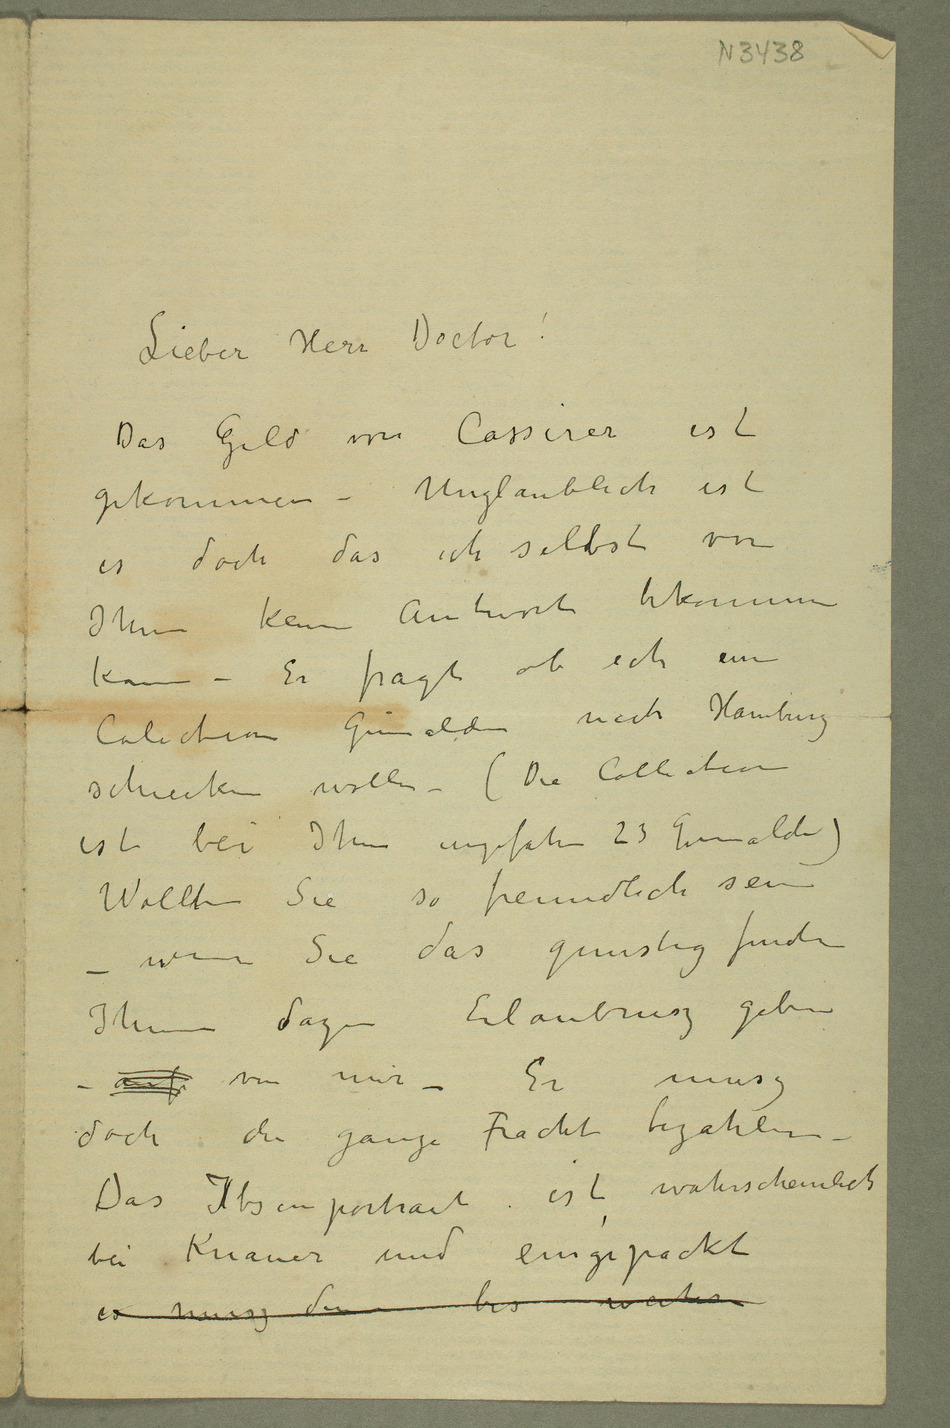 N3438
Lieber Herr Doctor!
Das Geld von Cassirer ist
gekommen – Unglaublich ist
es doch das ich selbst von
Ihm kein Antwort bekommen
kann – Er fragt ob ich eine
Colection Gemälden nach Hamburg
schiecken wolle – (Die Collection
ist bei Ihm ungefahr 23 Gemälde)
Wollten Sie so freundlich sein
– wenn Sie das gunstig finden
Ihmn dazu Erlaubnisz geben
– auf von mir – Er musz
doch die ganze Fracht bezahlen –
Das Ibsenportrait ist wahrscheinlich
bei Knauer und eingepackt
es musz da bis weiter